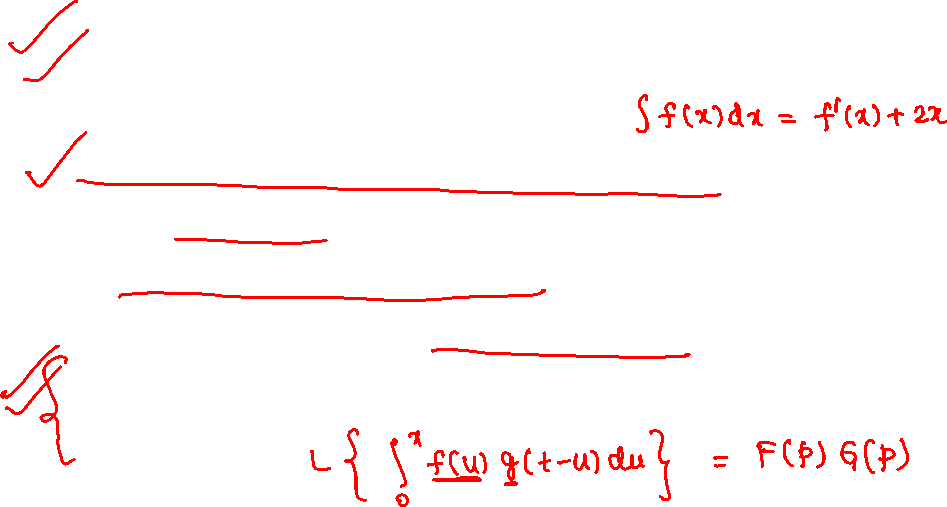 ∫ f(x) dx = f'(x) + 2x
L { ∫₀ˣ f(u) g(t-u) du } = F(p) G(p)